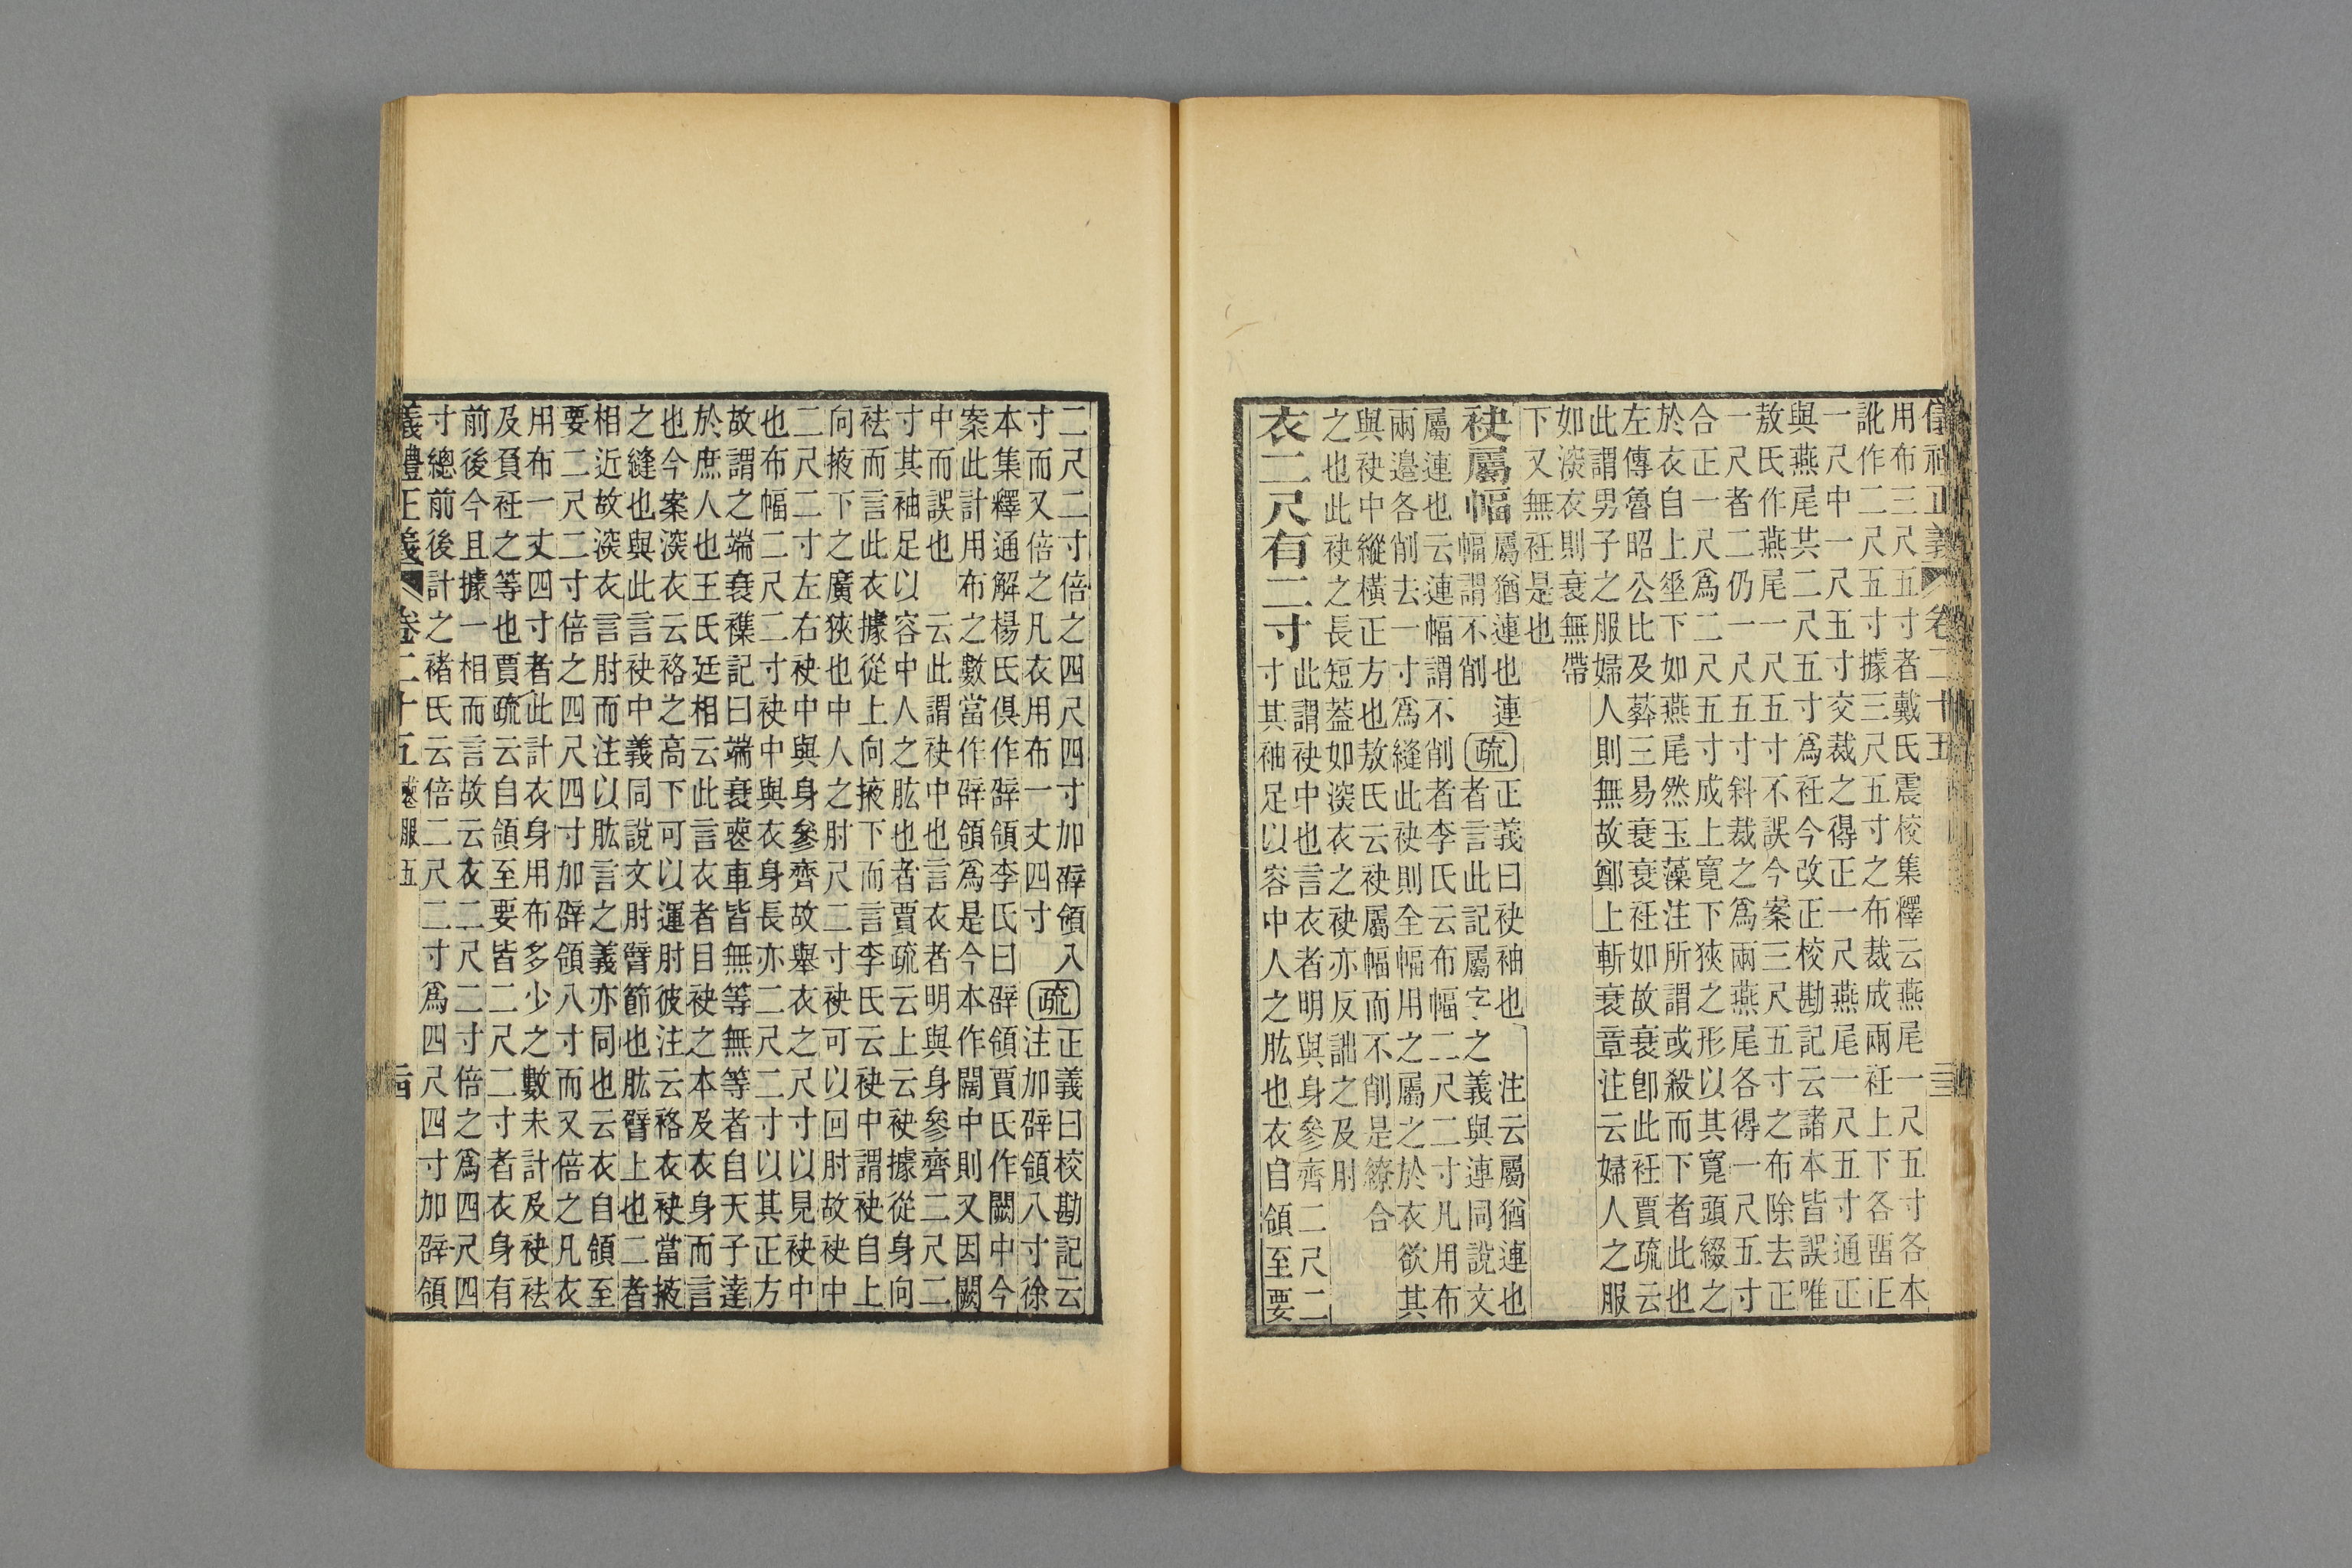 儀禮正義 卷二十五
用布三尺五寸者戴氏震校集釋云燕尾一尺五寸各本
訛作二尺五寸據三尺五寸之布裁成兩衽上下各畱正
一尺中一尺五寸交裁之得正一尺燕尾一尺五寸通正
與燕尾共二尺五寸爲衽今改正校勘記云諸本皆誤唯
敖氏作燕尾一尺五寸不誤今案三尺五寸之布除去正
一尺者二仍一尺五寸斜裁之爲兩燕尾各得一尺五寸
合正一尺爲二尺五寸成上寬下狹之形以其寬頭綴之
於衣自上垂下如燕尾然玉藻注所謂或殺而下者此也
左傳魯昭公比及葬三易衰衰衽如故衰卽此衽賈疏云
此謂男子之服婦人則無故鄭上斬衰章注云婦人之服
如深衣則衰無帶
下又無衽是也
袂屬幅
屬猶連也連
幅謂不削
疏
正義曰袂袖也 注云屬猶連也
者言此記屬字之義與連同說文
屬連也云連幅謂不削者李氏云布幅二尺二寸凡用布
兩邉各削去一寸爲縫此袂則全幅用之屬之於衣欲其
與袂中縱橫正方也敖氏云袂屬幅而不削是繚合
之也此袂之長短蓋如深衣之袂亦反詘之及肘
衣二尺有二寸
此謂袂中也言衣者明與身參齊二尺二
寸其袖足以容中人之肱也衣自領至要
二尺二寸倍之四尺四寸加辟領八
寸而又倍之凡衣用布一丈四寸
疏
正義曰校勘記云
注加辟領八寸徐
本集釋通解楊氏俱作辟領李氏曰辟領賈氏作闕中今
案此計用布之數當作辟領爲是今本作闊中則又因闕
中而誤也 云此謂袂中也言衣者明與身參齊二尺二
寸其袖足以容中人之肱也者賈疏云上云袂據從身向
袪而言此衣據從上向掖下而言李氏云袂中謂袂自上
向掖下之廣狹也中人之肘尺二寸袂可以回肘故袂中
二尺二寸左右袂中與身參齊故舉衣之尺寸以見袂中
也布幅二尺二寸袂中與衣身長亦二尺二寸以其正方
故謂之端衰襍記曰端衰喪車皆無等無等者自天子達
於庶人也王氏廷相云此言衣者目袂之本及衣身而言
也今案深衣云袼之高下可以運肘彼注云袼衣袂當掖
之縫也與此言袂中義同說文肘臂節也肱臂上也二者
相近故深衣言肘而注以肱言之義亦同也云衣自領至
要二尺二寸倍之四尺四寸加辟領八寸而又倍之凡衣
用布一丈四寸者此計衣身用布多少之數未計及袂袪
及負衽之等也賈疏云自領至要皆二尺二寸者衣身有
前後今且據一相而言故云衣二尺二寸倍之爲四尺四
寸總前後計之褚氏云倍二尺二寸爲四尺四寸加辟領
義禮正義 卷二十五 喪服五